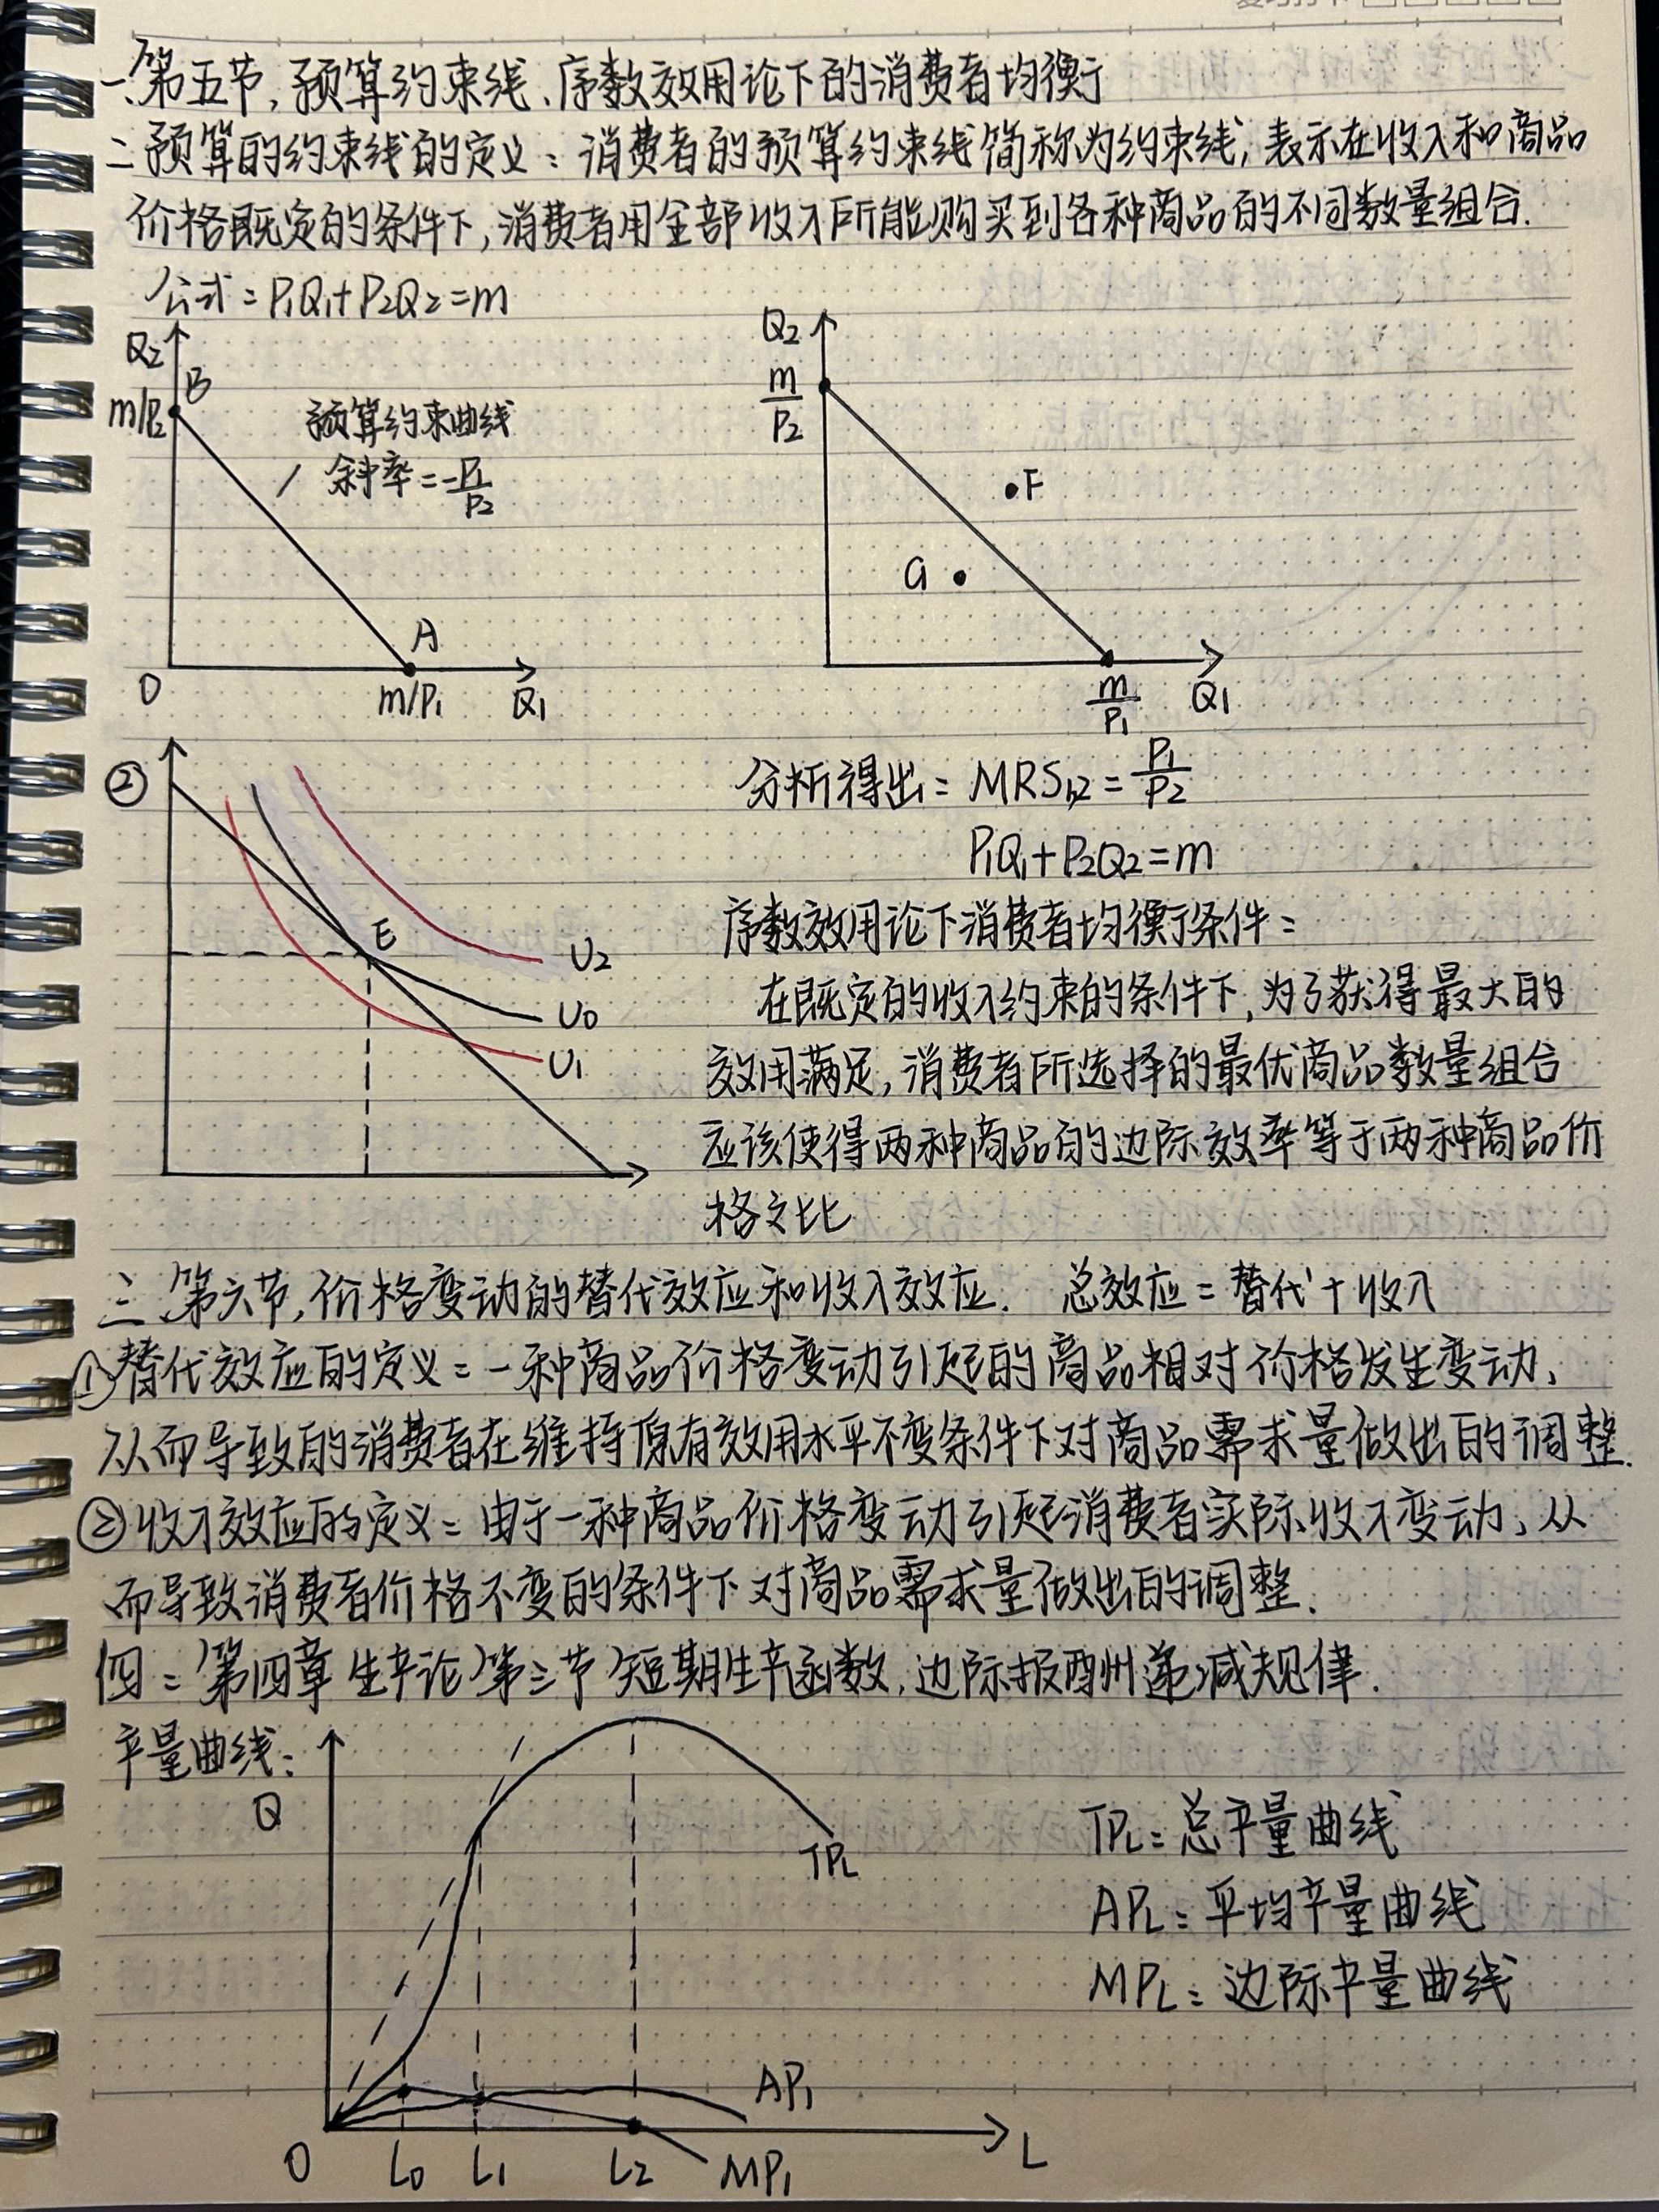 一、第五节，预算约束线、序数效用论下的消费者均衡
二、预算的约束线的定义：消费者的预算约束线简称为约束线，表示在收入和商品
价格既定的条件下，消费者用全部收入所能购买到各种商品的不同数量组合.
公式：P₁Q₁+P₂Q₂=m
Q₂
B
m/P₂
预算约束曲线
斜率=-P₁/P₂
A
O
m/P₁
Q₁
Q₂
m/P₂
F
G
m/P₁
Q₁
②
E
U₂
U₀
U₁
分析得出：MRS₁,₂=P₁/P₂
P₁Q₁+P₂Q₂=m
序数效用论下消费者均衡条件：
在既定的收入约束的条件下，为了获得最大的
效用满足，消费者所选择的最优商品数量组合
应该使得两种商品的边际效率等于两种商品价
格之比
三、第六节，价格变动的替代效应和收入效应. 总效应=替代+收入
①替代效应的定义：一种商品价格变动引起的商品相对价格发生变动、
从而导致的消费者在维持原有效用水平不变条件下对商品需求量做出的调整.
②收入效应的定义：由于一种商品价格变动引起消费者实际收入变动、从
而导致消费者价格不变的条件下对商品需求量做出的调整.
四：第四章 生产论 第三节 短期生产函数，边际报酬递减规律.
产量曲线：
Q
TPL
TPL：总产量曲线
APL：平均产量曲线
MPL：边际产量曲线
AP₁
O
L₀
L₁
L₂
MP₁
L